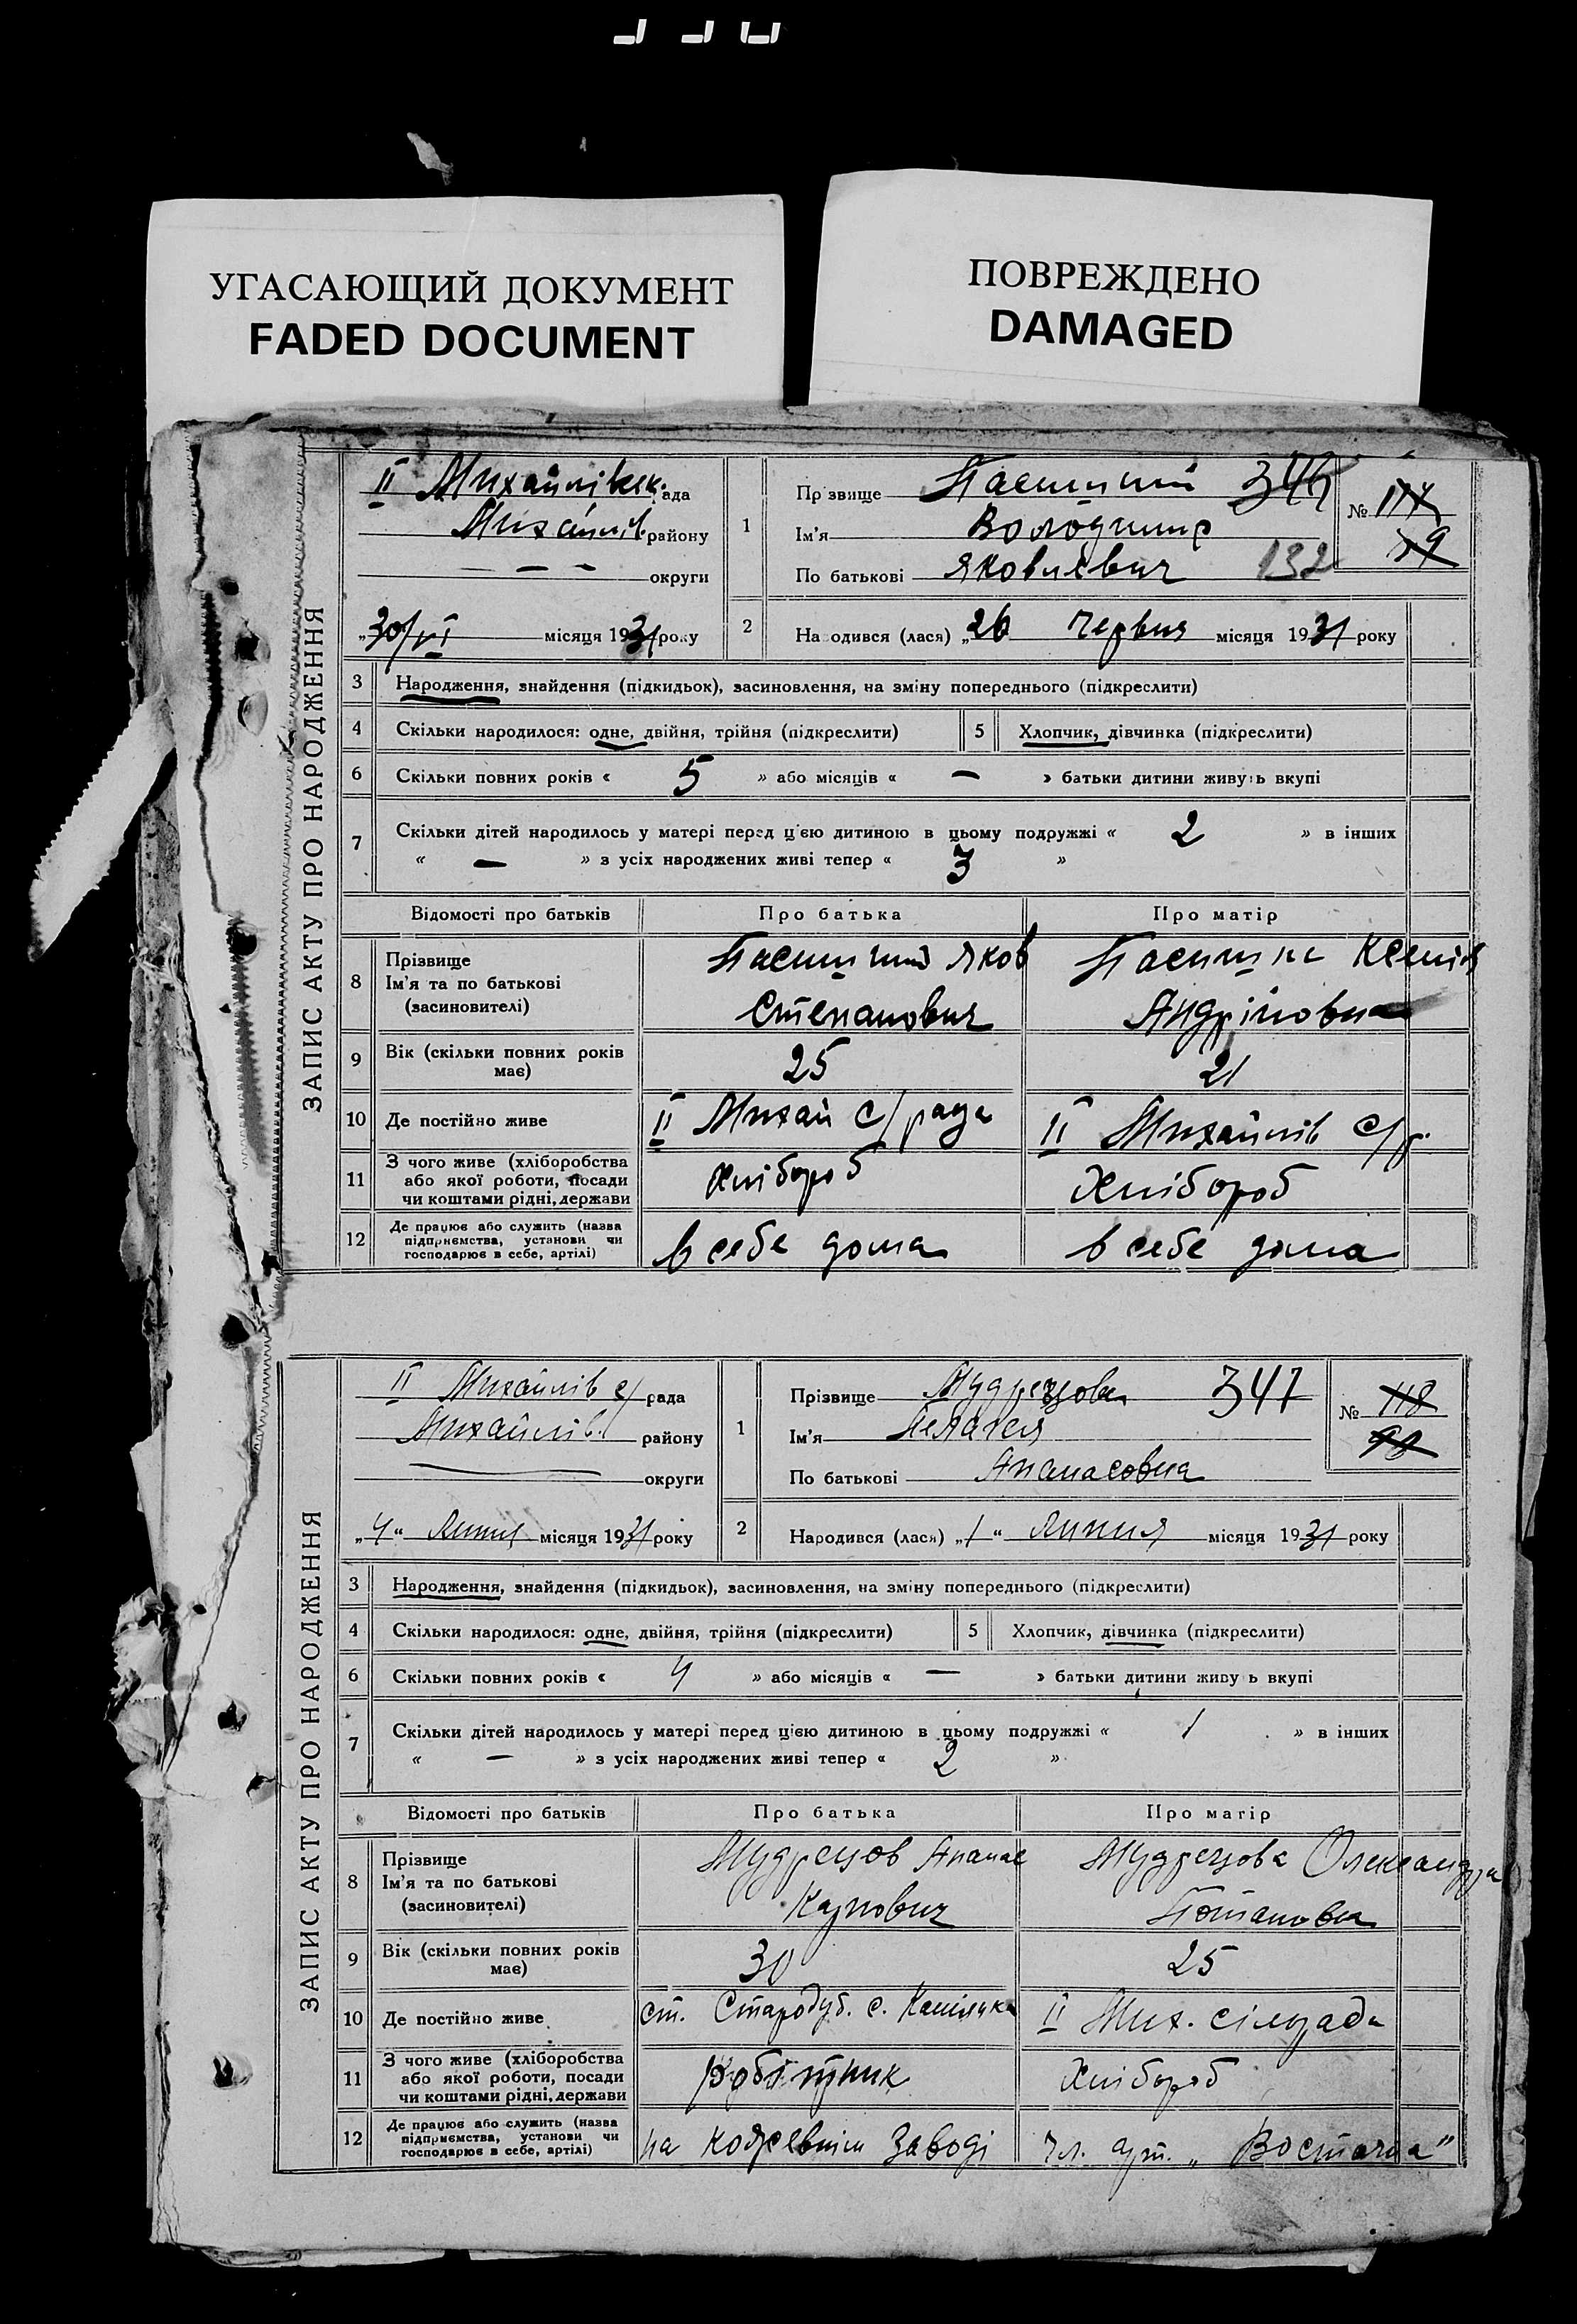 УГАСАЮЩИЙ ДОКУМЕНТ
FADED DOCUMENT
ПОВРЕЖДЕНО
DAMAGED
ЗАПИС АКТУ ПРО НАРОДЖЕННЯ
II Михайлівськ. рада
Михайлів. району
— — — округи
„30/VI місяця 1931 року
1
Прізвище 346
Ім'я Володимир
По батькові Яковлевич 132
№ 117
2
Народився (лася) „26 Червня місяця 1931 року
3 Народження, знайдення (підкидьок), засиновлення, на зміну попереднього (підкреслити)
4 Скільки народилося: одне, двійня, трійня (підкреслити) 5 Хлопчик, дівчинка (підкреслити)
6 Скільки повних років « 5 » або місяців « — » батьки дитини живуть вкупі
7 Скільки дітей народилось у матері перед цією дитиною в цьому подружжі « 2 » в інших
« — » з усіх народжених живі тепер « 3 »
Відомості про батьків Про батька Про матір
8 Прізвище
Ім'я та по батькові
(засиновителі)
Яков
Степанович
Ксенія
Андріновна
9 Вік (скільки повних років має) 25 21
10 Де постійно живе II Михай с/рада II Михайлів с/р.
11 З чого живе (хліборобства
або якої роботи, посади
чи коштами рідні, держави
Хлібороб Хлібороб
12 Де працює або служить (назва
підприємства, установи чи
господарює в себе, артілі)
в себе дома в себе дома
ЗАПИС АКТУ ПРО НАРОДЖЕННЯ
II Михайлів с/ рада
Михайлів. району
— округи
„4“ Липня місяця 1931 року
1
Прізвище Мудрецова 347
Ім'я Пелагея
По батькові Апанасовна
№ 118
98
2
Народився (лася) „1“ Липня місяця 1931 року
3 Народження, знайдення (підкидьок), засиновлення, на зміну попереднього (підкреслити)
4 Скільки народилося: одне, двійня, трійня (підкреслити) 5 Хлопчик, дівчинка (підкреслити)
6 Скільки повних років « 4 » або місяців « — » батьки дитини живуть вкупі
7 Скільки дітей народилось у матері перед цією дитиною в цьому подружжі « 1 » в інших
« — » з усіх народжених живі тепер « 2 »
Відомості про батьків Про батька Про матір
8 Прізвище
Ім'я та по батькові
(засиновителі)
Мудрецов Апанас
Карпович
Мудрецова Олександра
Потаповна
9 Вік (скільки повних років має) 30 25
10 Де постійно живе ст. Стародуб. с. II Мих. сільрада
11 З чого живе (хліборобства
або якої роботи, посади
чи коштами рідні, держави
Робітник Хлібороб
12 Де працює або служить (назва
підприємства, установи чи
господарює в себе, артілі)
на кожевнім заводі чл. арт. „